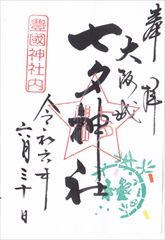 奉拝
大阪城
七夕神社
豊國神社内
令和六年
六月三十日